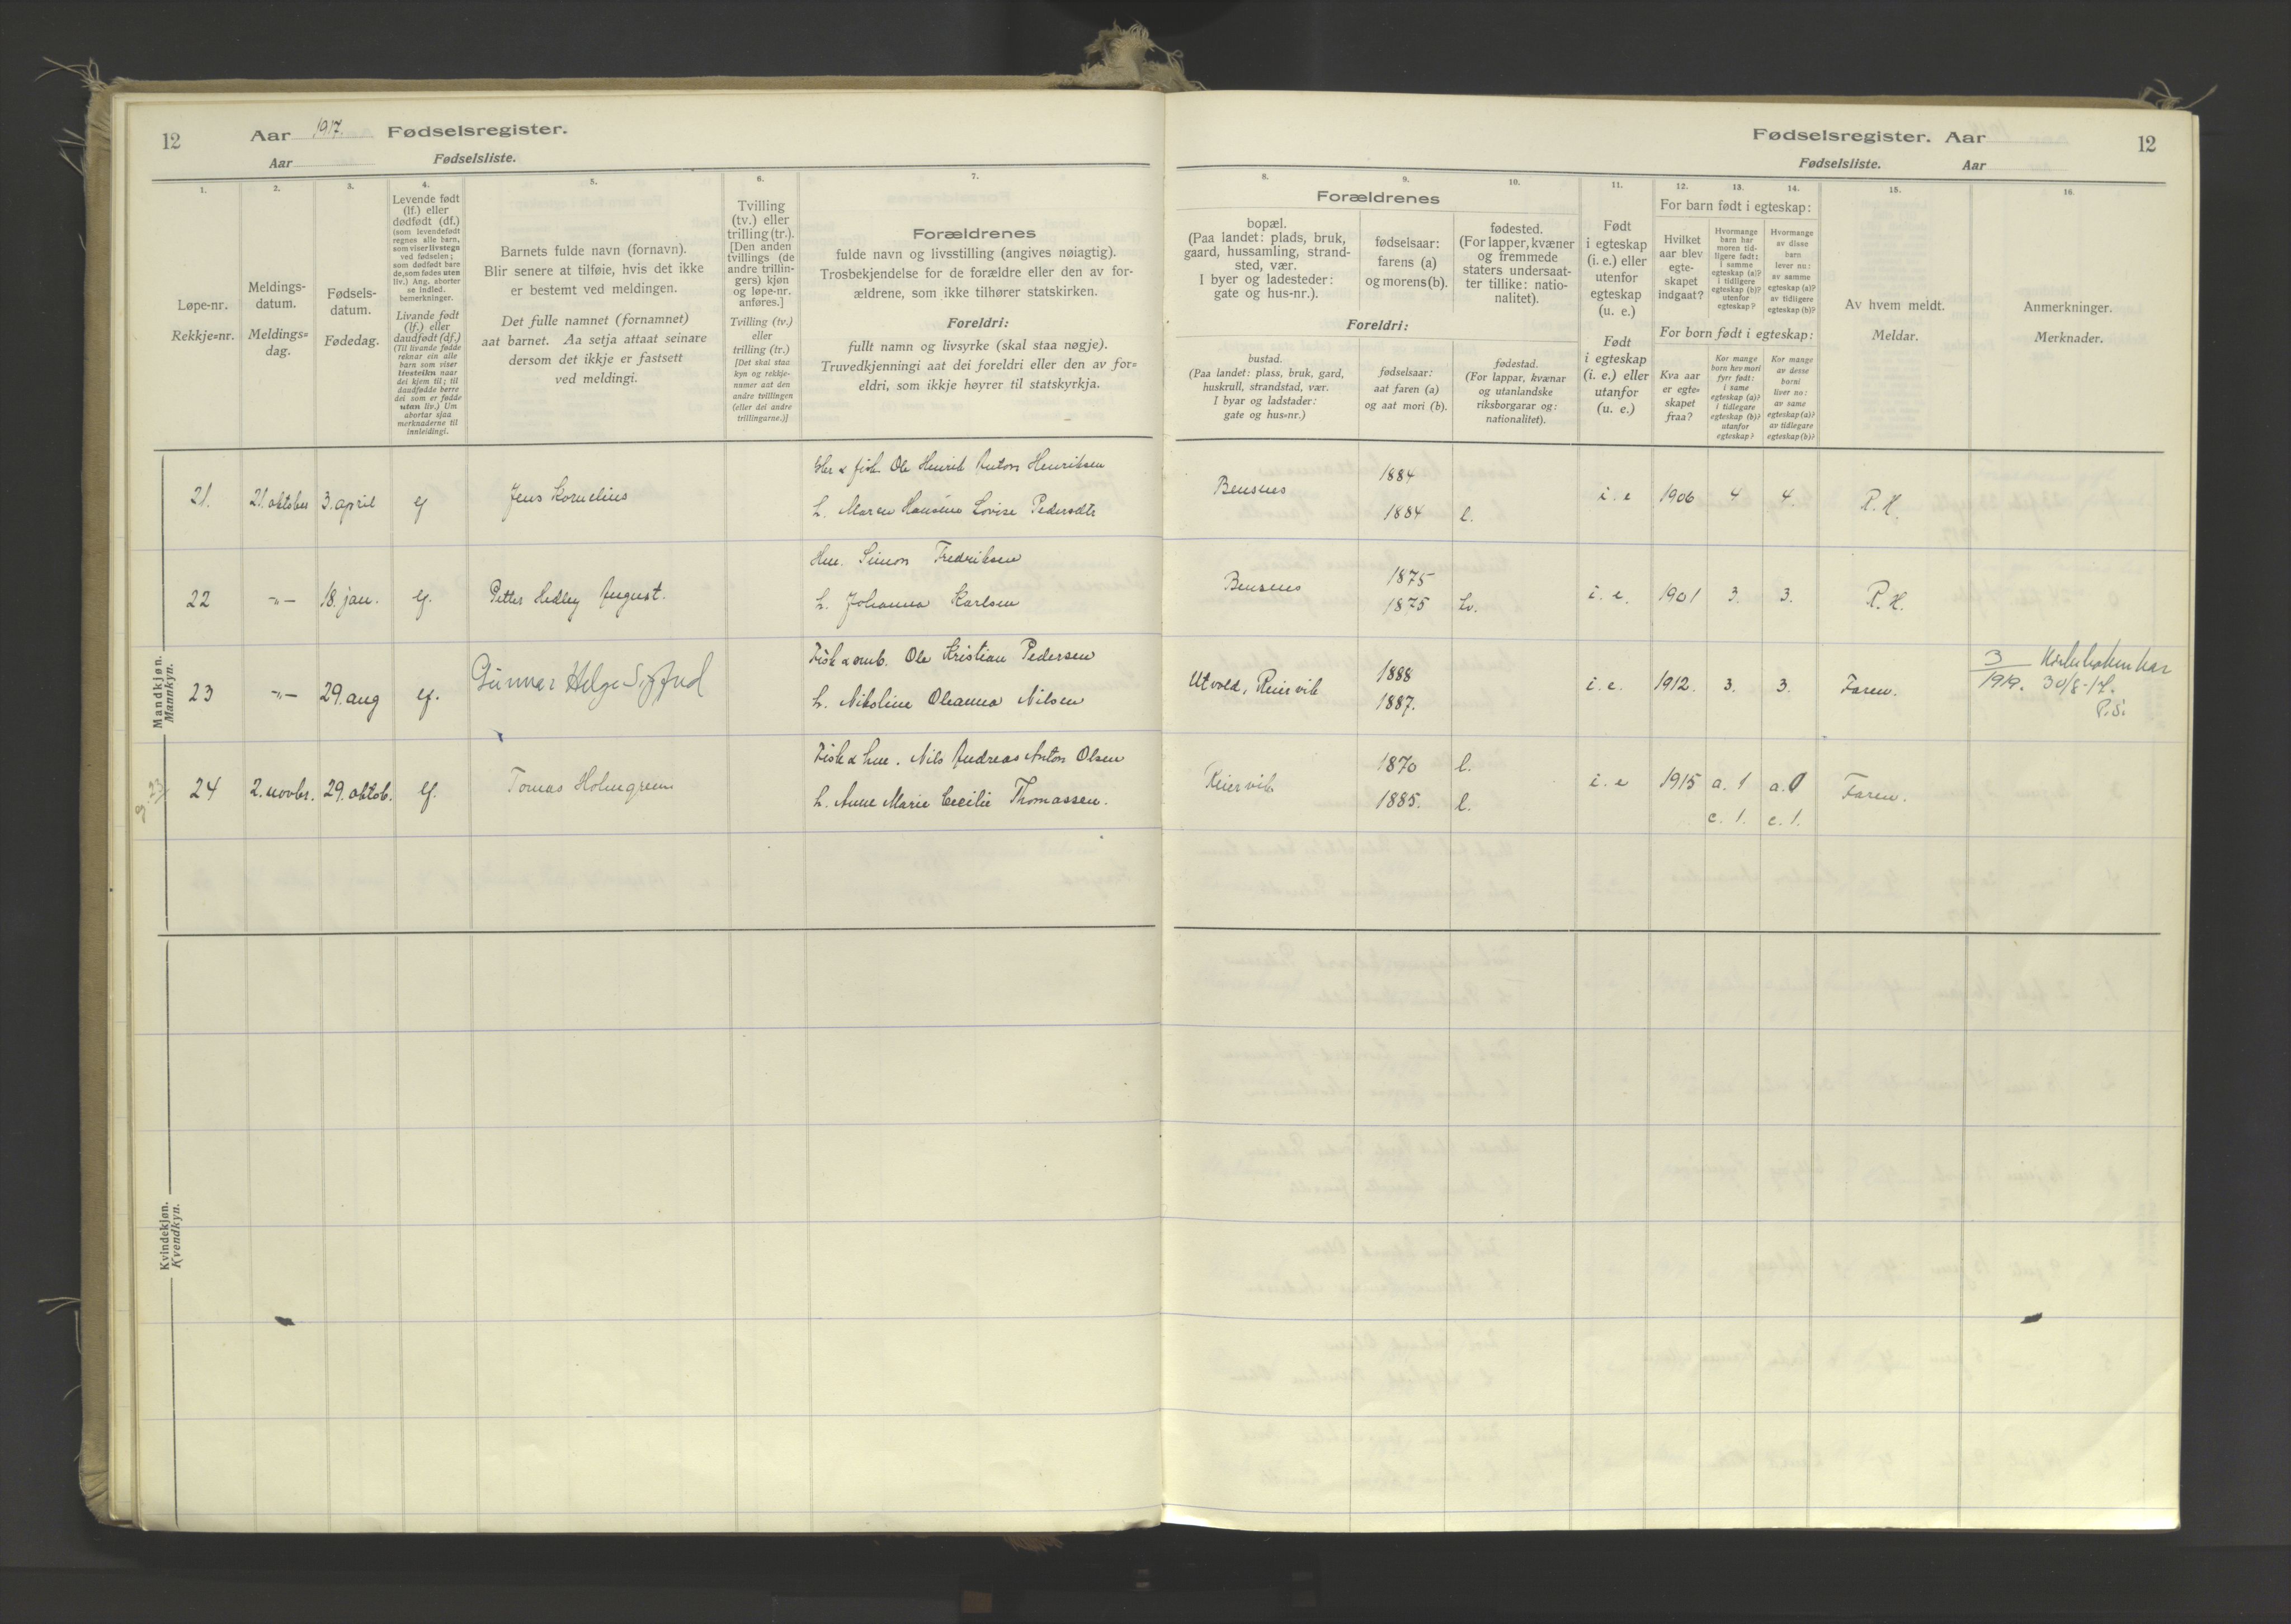 12 Aar 1917. Fødselsregister.
Aar Fødselsliste.
1. 2. 3. 4. 5. 6. 7.
Løpe-nr.
Rekkje=nr.
Meldings-
datum.
Meldings=
dag.
Fødsels-
datum.
Fødedag.
Levende født
(lf.) eller
dødfødt (df.)
(som levendefødt
regnes alle barn,
som viser livstegn
ved fødselen;
som dødfødt bare
de, som fødes uten
liv.) Ang. aborter
se indled.
bemerkninger.
Livande født
(lf.) eller
daudfødt (df.)
(Til livande fødde
reknar ein alle
barn som viser
livsteikn naar
dei kjem til; til
daudfødde berre
dei som er fødde
utan liv.) Um
abortar sjaa
merknaderne til
innleidingi.
Barnets fulde navn (fornavn).
Blir senere at tilføie, hvis det ikke
er bestemt ved meldingen.
Det fulle namnet (fornamnet)
aat barnet. Aa setja attaat seinare
dersom det ikkje er fastsett
ved meldingi.
Tvilling
(tv.) eller
trilling (tr.).
[Den anden
tvillings (de
andre trillin-
gers) kjøn
og løpe-nr.
anføres.]
Tvilling (tv.)
eller
trilling (tr.)
[Det skal staa
kyn og rekkje-
numer aat den
andre tvillingen
(eller dei andre
trillingarne.)]
Forældrenes
fulde navn og livsstilling (angives nøiagtig).
Trosbekjendelse for de forældre eller den av for-
ældrene, som ikke tilhører statskirken.
Foreldri:
fullt namn og livsyrke (skal staa nøgje).
Truvedkjenningi aat dei foreldri eller den av for=
eldri, som ikkje høyrer til statskyrkja.
Mandkjøn.
Mannkyn.
21. 21. oktober 3. april lf Jens Kornelius fisk. Ole Henrik Anton Henriksen
h. Maren Hansine Lovise Pedersdtr
22 -"- 18. jan. lf. Petter Hedley August. Hus. Simon Fredriksen
h. Johanna Karlsen
23 -"- 29. aug lf. Gunnar Helge Sigfrud Fisk & omb. Ole Kristian Pedersen
h. Nikoline Oleanna Nilsen
24 2. novbr. 29. oktob. lf. Tomas Holmgreen Fisk & hus. Nils Andreas Anton Olsen
h. Anne Marie Cecilie Thomassen.
Kvindekjøn.
Kvendkyn.
Fødselsregister. Aar 12
Fødselsliste. Aar
8. 9. 10. 11. 12. 13. 14. 15. 16.
Forældrenes
bopæl.
(Paa landet: plads, bruk,
gaard, hussamling, strand-
sted, vær.
I byer og ladesteder:
gate og hus-nr.).
fødselsaar:
farens (a)
og morens (b).
fødested.
(For lapper, kvæner
og fremmede
staters undersaat-
ter tillike: natio-
nalitet).
Foreldri:
bustad.
(Paa landet: plass, bruk, gard,
huskrull, strandstad, vær.
I byar og ladstader:
gate og hus=nr.)
fødselsaar:
aat faren (a)
og aat mori (b).
fødestad.
(For lappar, kvænar
og utanlandske
riksborgarar og:
nationalitet).
Født
i egteskap
(i. e.) eller
utenfor
egteskap
(u. e.)
Født
i egteskap
(i. e.) eller
utanfor
(u. e.)
For barn født i egteskap:
Hvilket
aar blev
egte-
skapet
indgaat?
Hvormange
barn har
moren tid-
ligere født:
i samme
egteskap (a)?
i tidligere
egteskap (b)?
utenfor
egteskap?
Hvormange
av disse
barn
lever nu:
av samme
egteskap (a)?
av tidligere
egteskap (b)?
For born født i egteskap:
Kva aar
er egte=
skapet
fraa?
Kor mange
born hev mori
fyrr født:
i same
egteskap (a)?
i tidlegare
egteskap (b)?
utanfor
egteskap?
Kor mange
av desse
borni
liver no:
av same
egteskap (a)?
av tidlegare
egteskap (b)?
Av hvem meldt.
Meldar.
Anmerkninger.
Merknader.
Bensnes 1884
1884 l. i. e 1906 4 4. R. H.
Bensnes 1875
1875 i. e. 1901 3. 3. R. H.
Utvold, Reiervik 1888
1887. i. e. 1912. 3. 3. Faren. 3/1919. 30/8-17.
P.S.
Reiervik 1870 l.
1885. l. i. e 1915 a. 1 a. 0 Faren.
c. 1. c. 1.